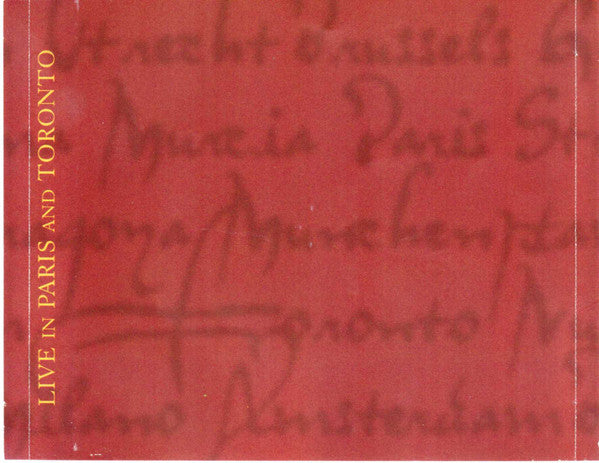 LIVE IN PARIS AND TORONTO
Utrecht Brussels
Murcia Paris
Munchen
Toronto
Milano Amsterdam